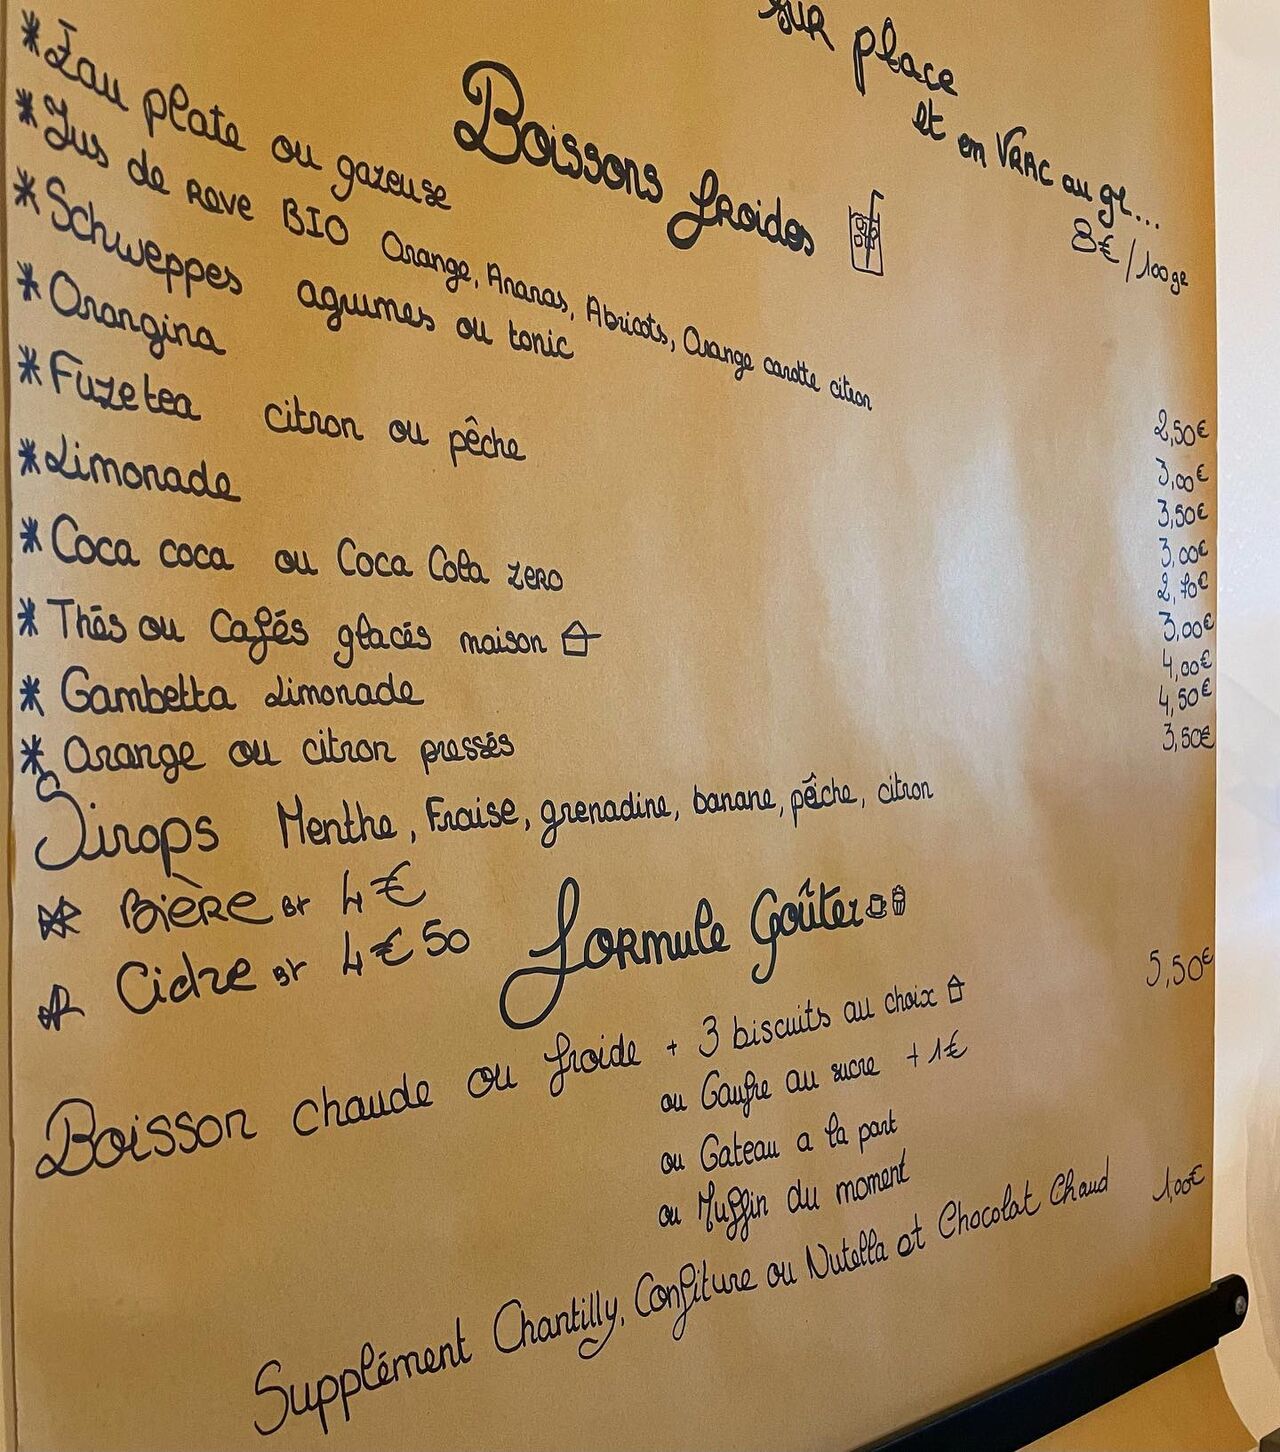 sur place
et en VRAC au gr...
8€/100gr
Boissons froides
* Eau plate ou gazeuse
* Jus de reve BIO Orange, Ananas, Abricots, Orange carotte citron
* Schweppes agrumes ou tonic
* Orangina
* Fuzetea citron ou pêche
* Limonade
* Coca coca ou Coca Cola zero
* Thés ou Cafés glacés maison
* Gambetta Limonade
* Orange ou citron pressés
2,50€
3,00€
3,50€
3,00€
2,70€
3,00€
4,00€
4,50€
3,50€
Sirops Menthe, Fraise, grenadine, banane, pêche, citron
* BIÈRE BT 4€
* Cidre BT 4€50
Formule Goûter
Boisson chaude ou froide + 3 biscuits au choix 5,50€
ou Gaufre au sucre + 1€
ou Gateau a la part
ou Muffin du moment
Supplément Chantilly, Confiture ou Nutella et Chocolat Chaud 1,00€